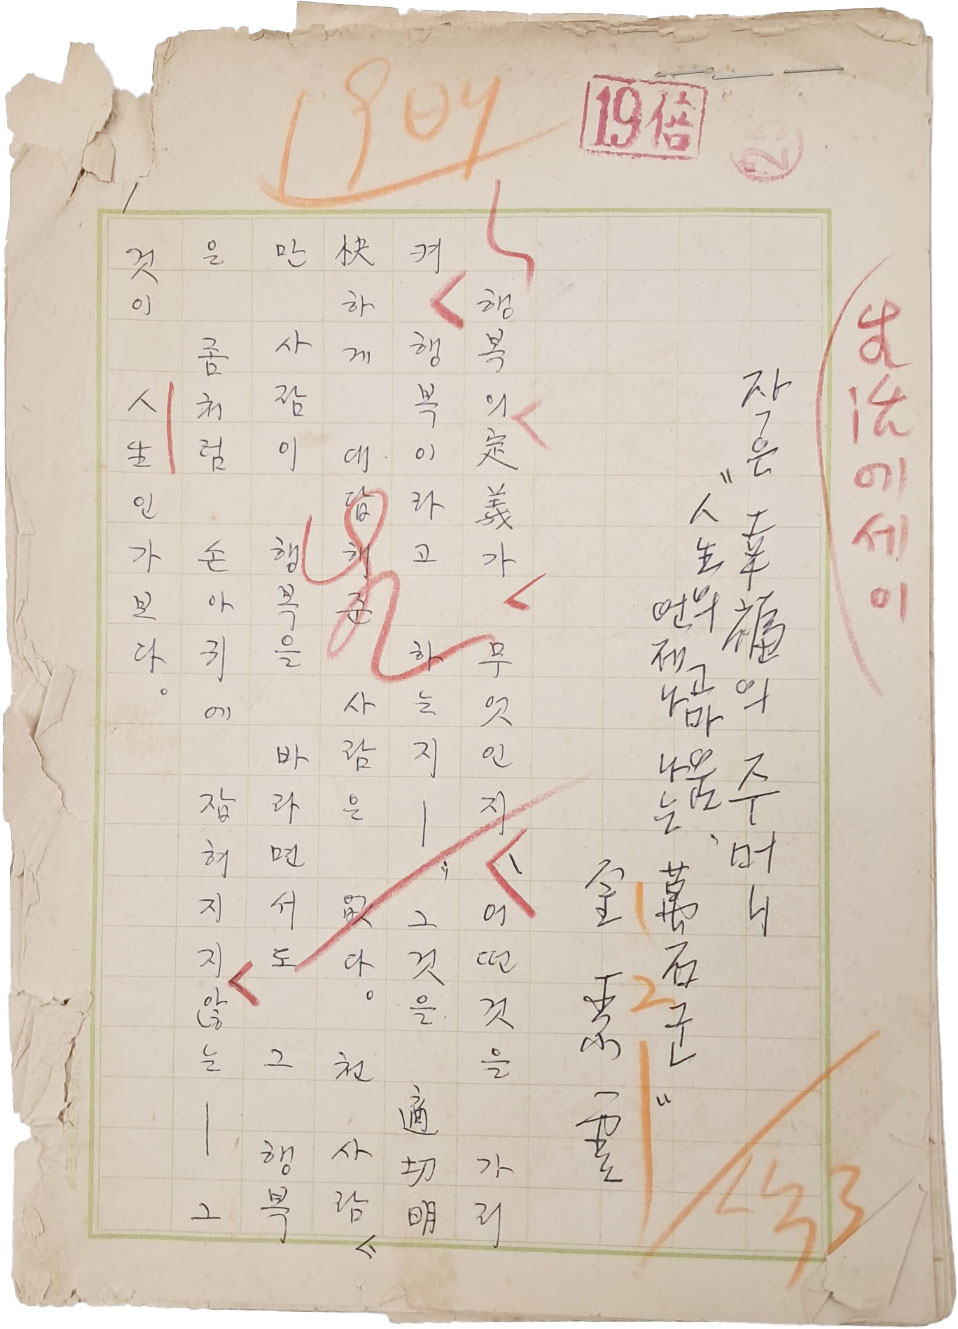 19倍
生活에세이
작은 幸福의 주머니
"人生의 고마움,
언제나 나는 萬石군"
행복의 定義가 무엇인지 어떤것을 가리
켜 행복이라고 하는지— 그것을 適切明
快하게 대답해준 사람은 없다. 천 사람
만 사람이 행복을 바라면서도 그 행복
은 좀처럼 손아귀에 잡혀지지 않는— 그
것이 人生인가보다.